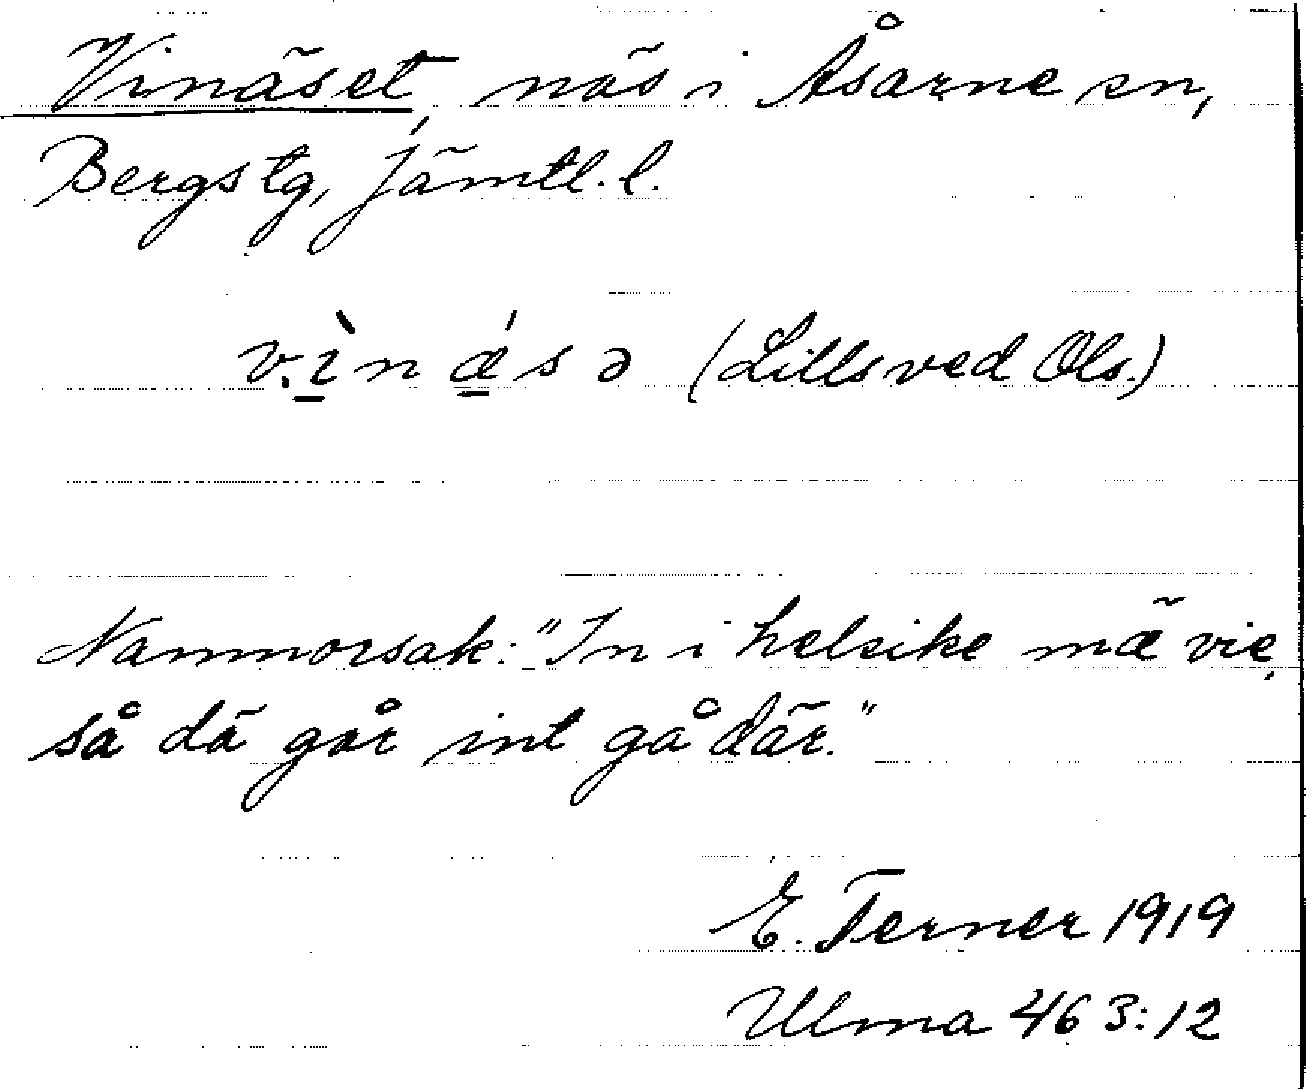 Vinäset, näs i Åsarne sn,
Bergs tg, Jämtl. l.
v.ı̀næ̀́sə (Lillsved Ols.)
Namnorsak: "In i helsike mä vie,
så dä går int gå där."
E. Terner 1919
Ulma 463:12